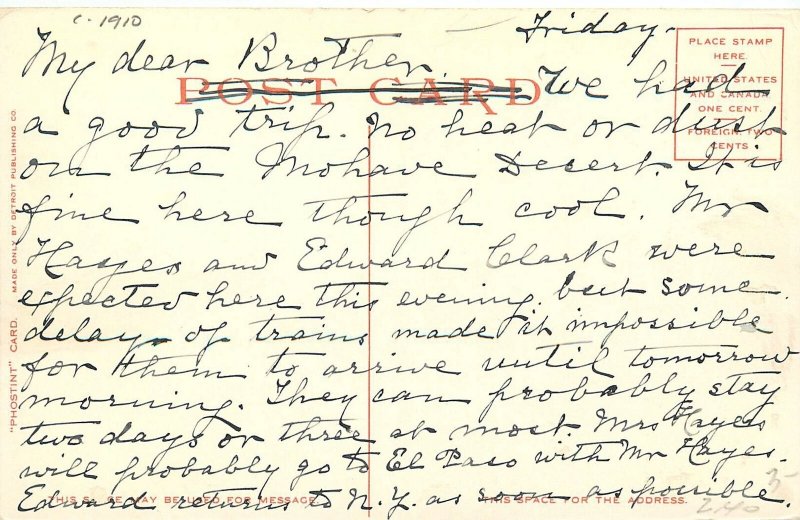 c. 1910
Friday.
My dear Brother,
POST CARD
We had
PLACE STAMP
HERE.
UNITED STATES
AND CANADA
ONE CENT.
FOREIGN, TWO
CENTS
a good trip. No heat or dust
on the Mohave Desert. It is
fine here though cool. Mr
Hayes and Edward Clark were
expected here this evening but some
delay of trains made it impossible
for them to arrive until tomorrow
morning. They can probably stay
two days or three at most Mrs Hayes
will probably go to El Paso with Mr Hayes.
Edward returns to N.Y. as soon as possible.
THIS SPACE MAY BE USED FOR MESSAGE.
THIS SPACE FOR THE ADDRESS.
"PHOSTINT" CARD. MADE ONLY BY DETROIT PUBLISHING CO.